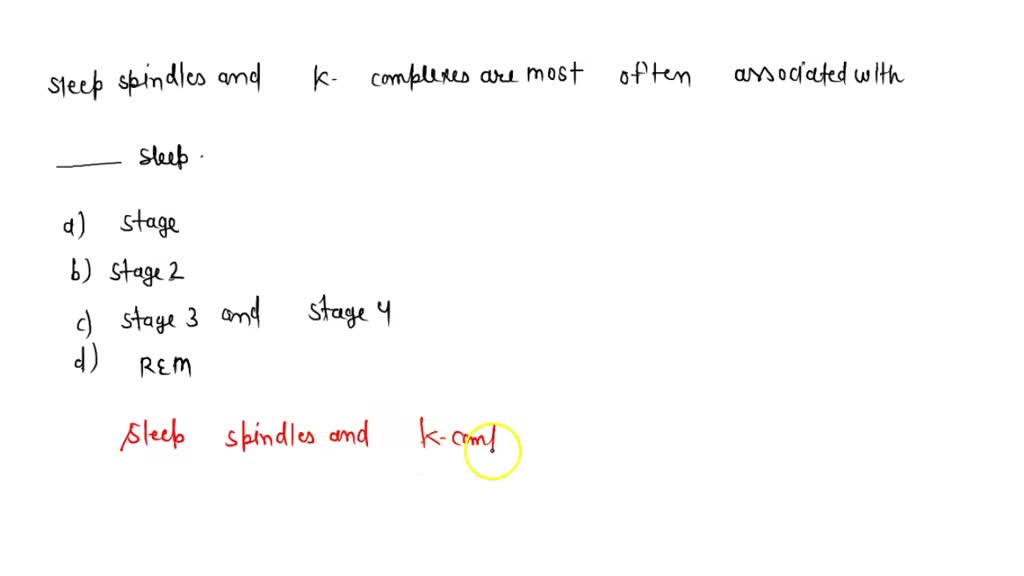 sleep spindles and k- complexes are most often associated with
____ sleep.
a) stage
b) stage 2
c) stage 3 and stage 4
d) REM
sleep spindles and k-comp